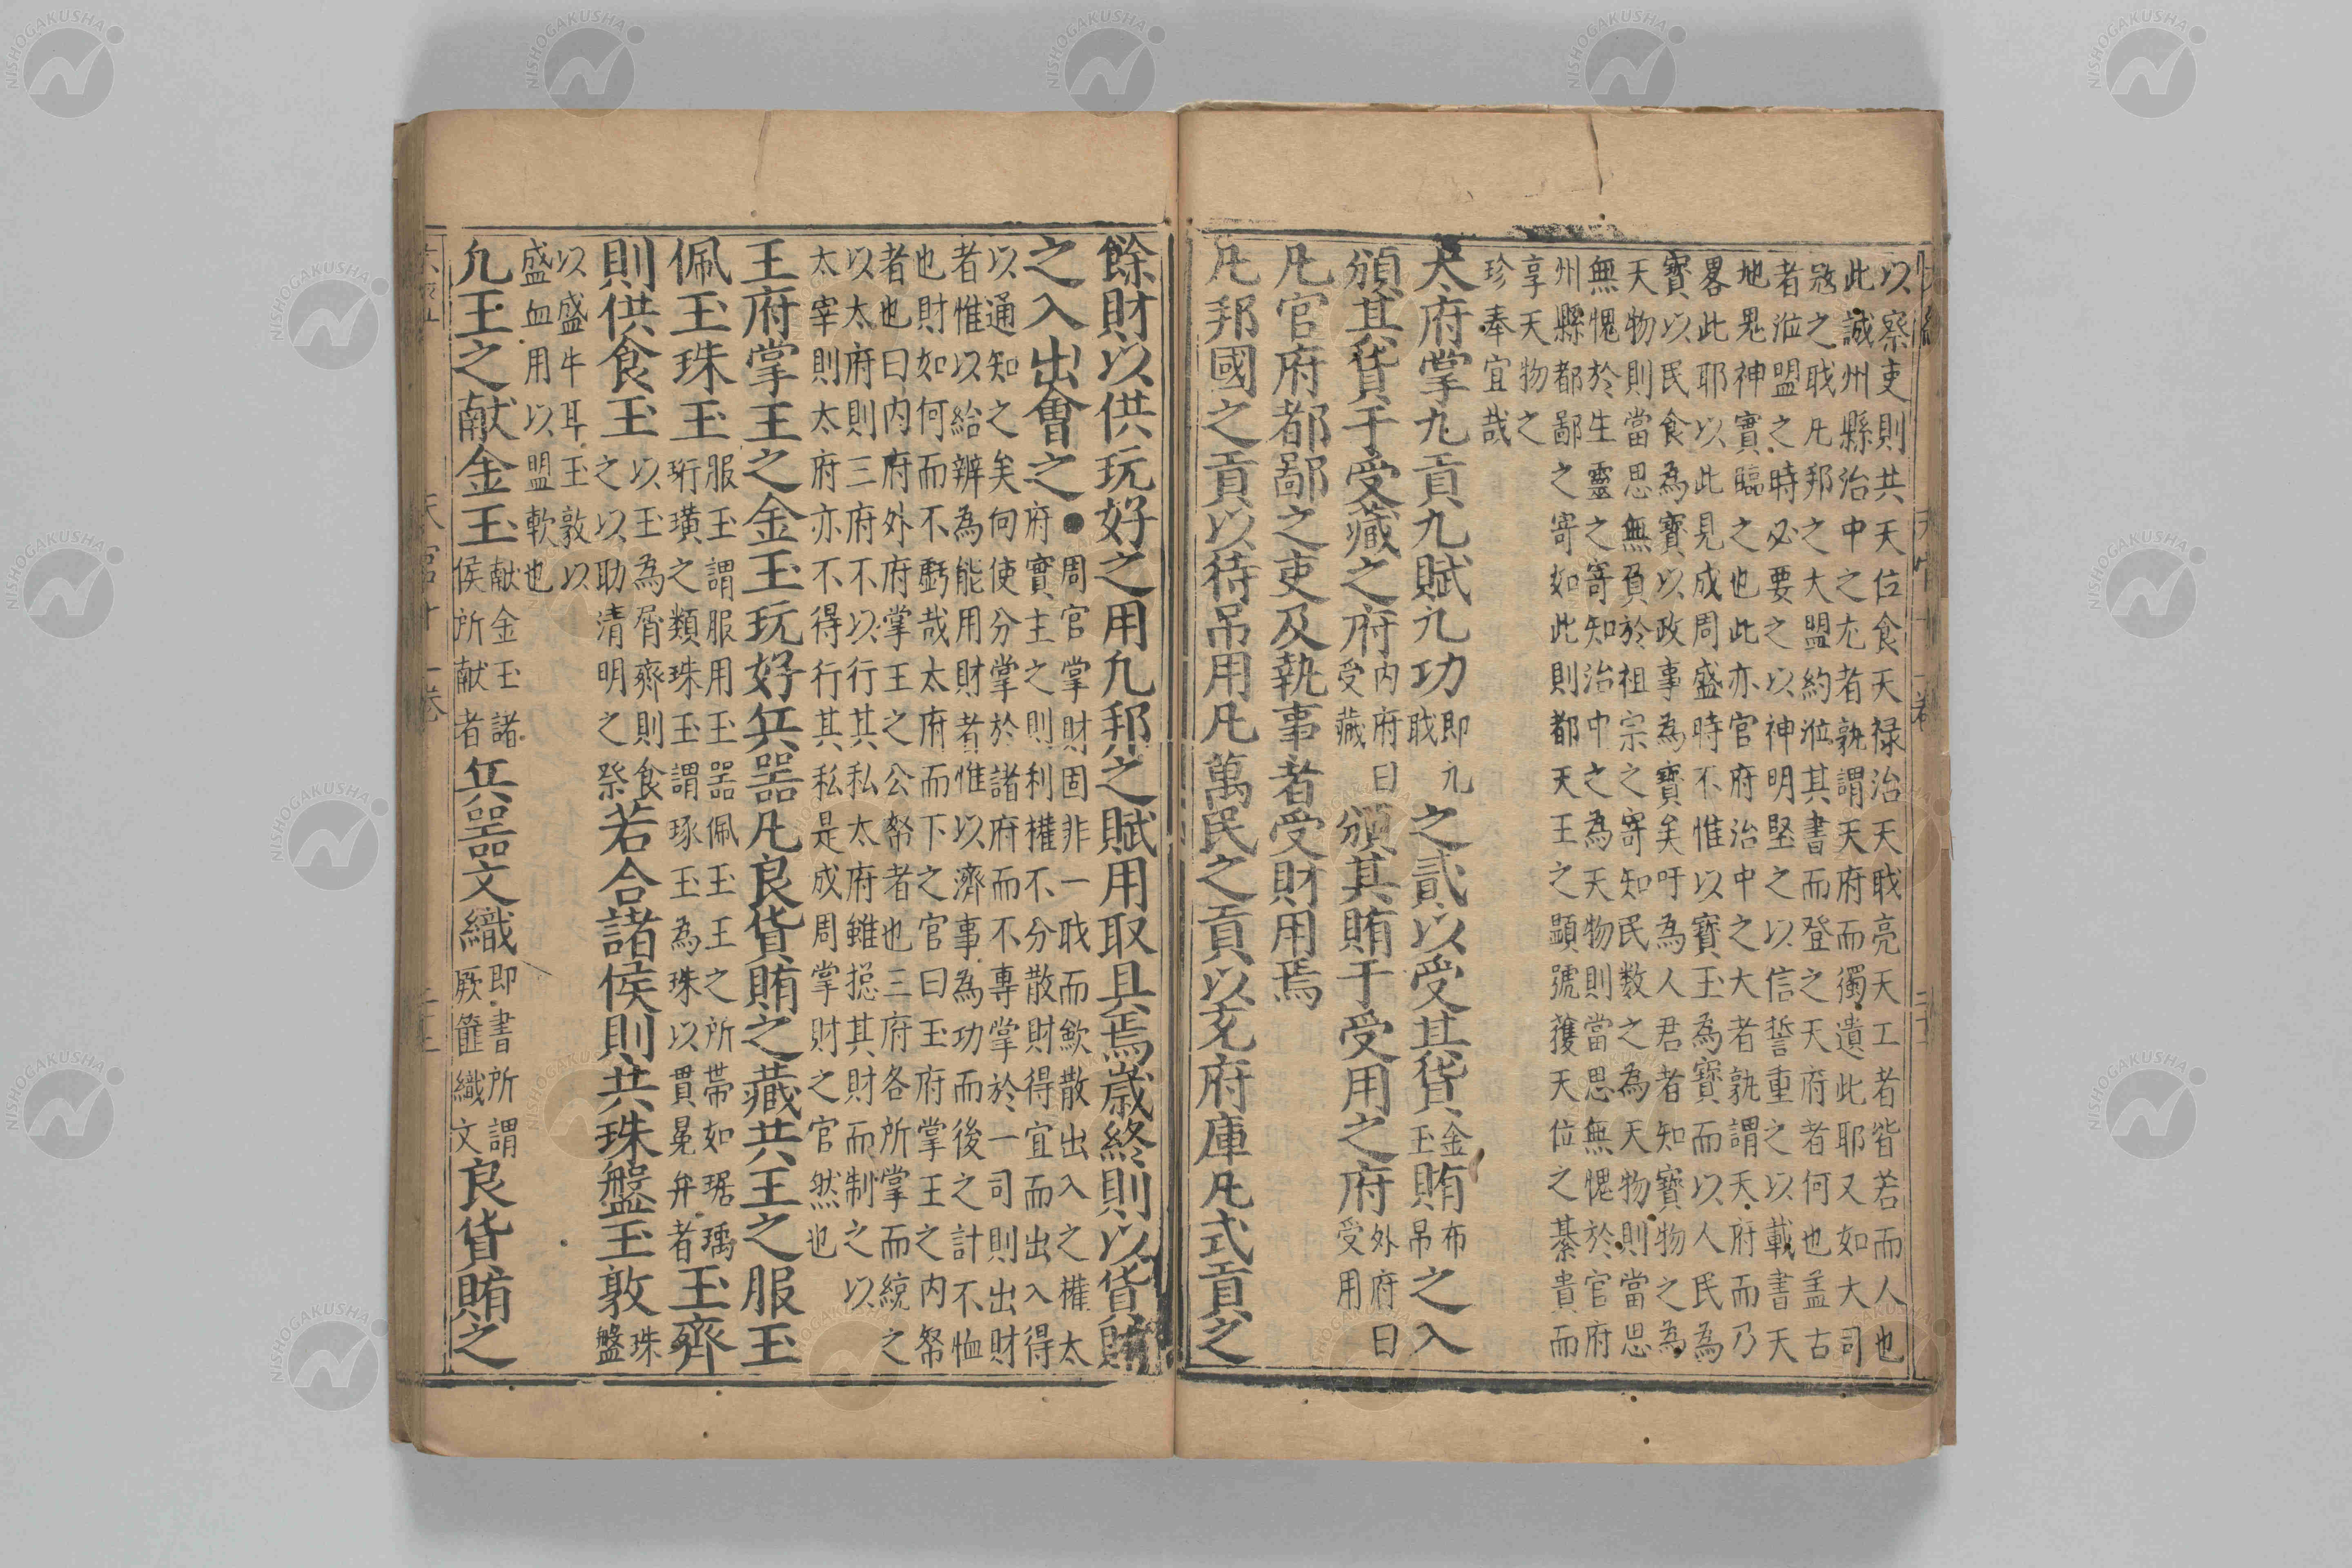 以察吏則共天位食天禄治天戝亮天工者皆若而人也
此誠州縣治中之尤者孰謂天府而獨遺此耶又如大司
寇之戝凡邦之大盟約涖其書而登之天府者何也盖古
者涖盟之時必要之以神明堅之以信誓重之以載書天
地鬼神實臨之也此亦官府治中之大者孰謂天府而乃
畧此耶以此見成周盛時不惟以寳玉為寳而以人民為
寳以民食為寳以政事為寳矣吁為人君者知寳物之為
天物則當思無負於祖宗之寄知民数之為天物則當思
無愧於生靈之寄知治中之為天物則當思無愧於官府
州縣都鄙之寄如此則都天王之顕號獲天位之綦貴而
享天物之
珍奉宜哉
大府掌九貢九賦九功即九戝之貳以受其貨金玉賄布帛之入
頒其貨于受藏之府内府曰受藏頒其賄于受用之府外府曰受用
凡官府都鄙之吏及執事者受財用焉
凡邦國之貢以待吊用凡萬民之貢以充府庫凡式貢之
餘財以供玩好之用凡邦之賦用取具焉歳終則以貨賄
之入出會之●周官掌財固非一戝而斂散出入之權太
府實主之則利權不分散財得宜而出入得
以通知之矣何使分掌於諸府而不專掌於一司則出財
者惟以給辨為能用財者惟以濟事為功而後之計不恤
也財如何而不虧哉太府而下之官曰玉府掌王之内帑
者也曰内府外府掌王之公帑者也三府各所掌而統之
以太府則三府不以行其私太府雖揔其財而制之以
太宰則太府亦不得行其私是成周掌財之官然也
王府掌王之金玉玩好兵噐凡良貨賄之藏共王之服玉
佩玉珠玉服玉謂服用玉噐佩玉王之所帯如琚瑀珩璜之類珠玉謂琢玉為珠以貫冕弁者玉齊
則供食玉以玉為屑齊則食之以助清明之祭若合諸侯則共珠盤玉敦珠盤
以盛牛耳玉敦以
盛血用以盟軟也
凡王之献金玉献金玉諸侯所献者兵噐文織即書所謂厥篚織文良貨賄之